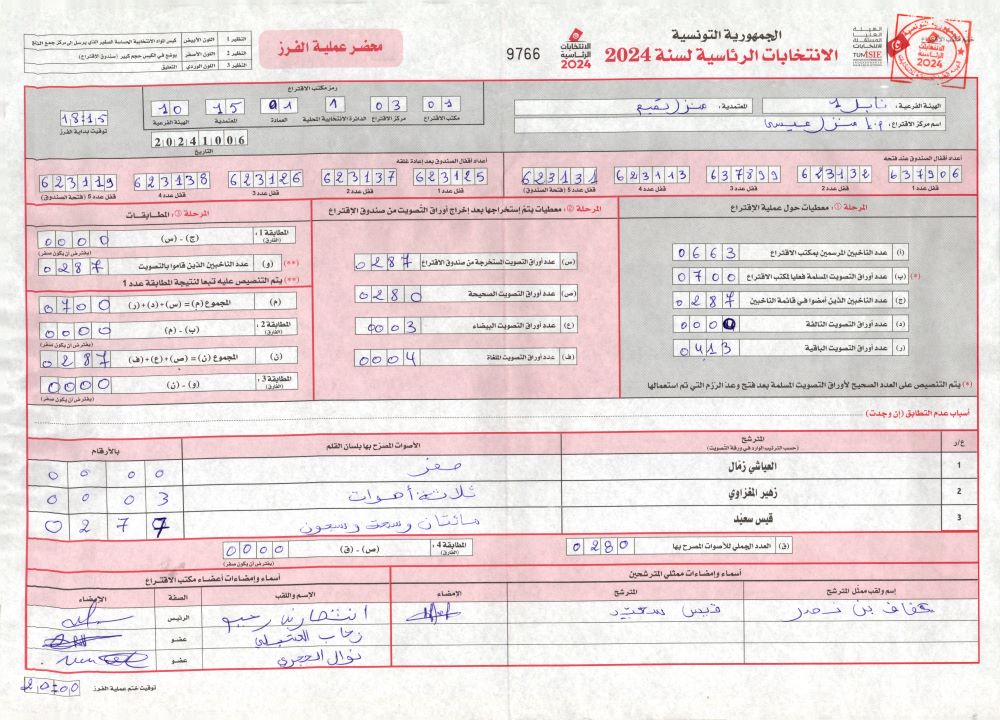 الجمهورية التونسية
الانتخابات الرئاسية لسنة 2024
الانتخابات الرئاسية 2024
9766
محضر عملية الفرز
النظير 1 اللون الأبيض كيس المواد الانتخابية الحساسة الصغير الذي يرسل إلى مركز جمع النتائج
النظير 2 اللون الأصفر يوضع في الكيس حجم كبير (صندوق الاقتراع)
النظير 3 اللون الوردي التعليق
الهيئة الفرعية: نابل 1 المعتمدية: منزل تميم
اسم مركز الاقتراع: م.إ منزل عيسى
رمز مكتب الاقتراع
01 03 1 91 15 10
مكتب الاقتراع مركز الاقتراع الدائرة الانتخابية المحلية العمادة المعتمدية الهيئة الفرعية
20241006
التاريخ
18:15
توقيت بداية الفرز
أعداد أقفال الصندوق عند فتحه
637906 623132 637899 623113 623131
قفل عدد 1 قفل عدد 2 قفل عدد 3 قفل عدد 4 قفل عدد 5 (فتحة الصندوق)
أعداد أقفال الصندوق بعد إعادة غلقه
623125 623137 623126 623138 623119
قفل عدد 1 قفل عدد 2 قفل عدد 3 قفل عدد 4 قفل عدد 5 (فتحة الصندوق)
المرحلة 1: معطيات حول عملية الإقتراع
(أ) عدد الناخبين المرسمين بمكتب الاقتراع 0663
(*) (ب) عدد أوراق التصويت المسلمة فعليا لمكتب الاقتراع 0700
(ج) عدد الناخبين الذين أمضوا في قائمة الناخبين 0287
(د) عدد أوراق التصويت التالفة 0000
(ر) عدد أوراق التصويت الباقية 0413
(*) يتم التنصيص على العدد الصحيح لأوراق التصويت المسلمة بعد فتح وعد الرزم التي تم استعمالها
المرحلة 2: معطيات يتم إستخراجها بعد إخراج أوراق التصويت من صندوق الإقتراع
(س) عدد أوراق التصويت المستخرجة من صندوق الاقتراع 0287
(ص) عدد أوراق التصويت الصحيحة 0280
(ع) عدد أوراق التصويت البيضاء 0003
(ف) عدد أوراق التصويت الملغاة 0004
المرحلة 3: المطابقات
المطابقة 1: (الفارق) (ج) - (س) 0000
(يفترض أن يكون صفر)
(**) (و) عدد الناخبين الذين قاموا بالتصويت 0287
(**) يتم التنصيص عليه تبعا لنتيجة المطابقة عدد 1
(م) المجموع (م) = (س)+(د)+(ر) 0700
المطابقة 2: (الفارق) (ب) - (م) 0000
(ن) المجموع (ن) = (ص)+(ع)+(ف) 0287
المطابقة 3: (الفارق) (و) - (ن) 0000
(يفترض أن يكون صفر)
أسباب عدم التطابق (إن وجدت)
ع/ر المترشح (حسب الترتيب الوارد في ورقة التصويت) الأصوات المصرح بها بلسان القلم بالأرقام
1 العياشي زمّال صفر 0000
2 زهير المغزاوي ثلاثة أصوات 0003
3 قيس سعيّد مائتان وسبعة وسبعون 0277
(ق) العدد الجملي للأصوات المصرح بها 0280
المطابقة 4: (الفارق) (ص) - (ق) 0000
(يفترض أن يكون صفر)
أسماء وإمضاءات ممثلي المترشحين
إسم ولقب ممثل المترشح المترشح الإمضاء
عفاف بن نصر قيس سعيّد
أسماء وإمضاءات أعضاء مكتب الاقتراع
الاسم واللقب الصفة الإمضاء
الرئيس
عضو
نوال الحجري عضو
توقيت ختم عملية الفرز 20:00